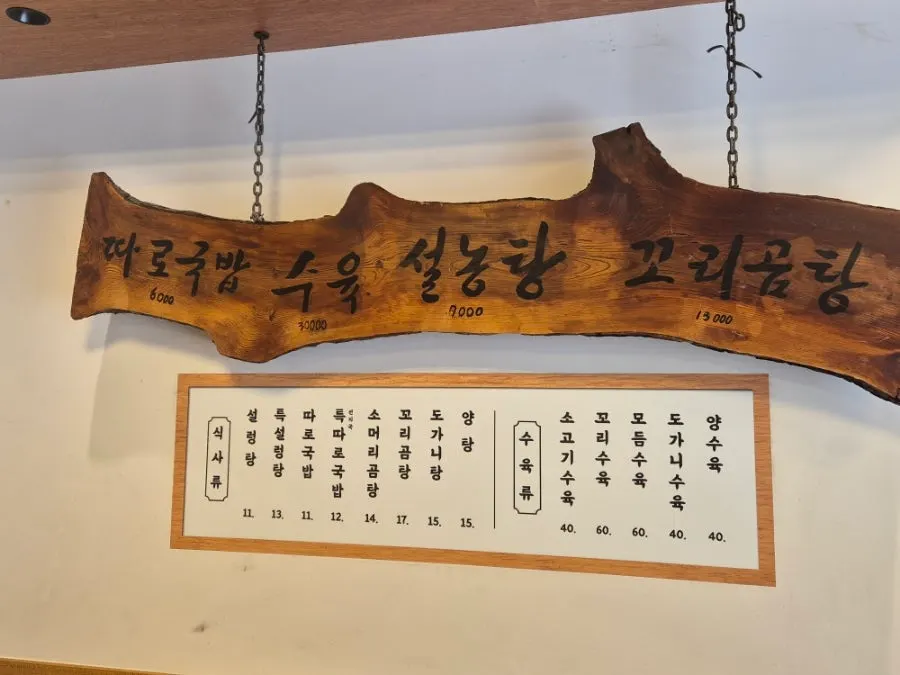 따로국밥 수육 설농탕 꼬리곰탕
6000 30000 7000 13000
식사류
설렁탕 11.
특설렁탕 13.
따로국밥 11.
특따로국밥 12.
소머리곰탕 14.
꼬리곰탕 17.
도가니탕 15.
양탕 15.
수육류
소고기수육 40.
꼬리수육 60.
모듬수육 60.
도가니수육 40.
양수육 40.